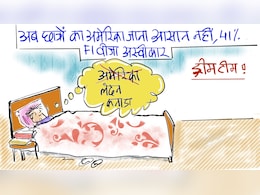 अब छात्रों का अमेरिका जाना आसान नहीं, 41%
F1 वीजा अस्वीकार
ड्रीम टीम ?
अमेरिका
लंदन
कनाडा